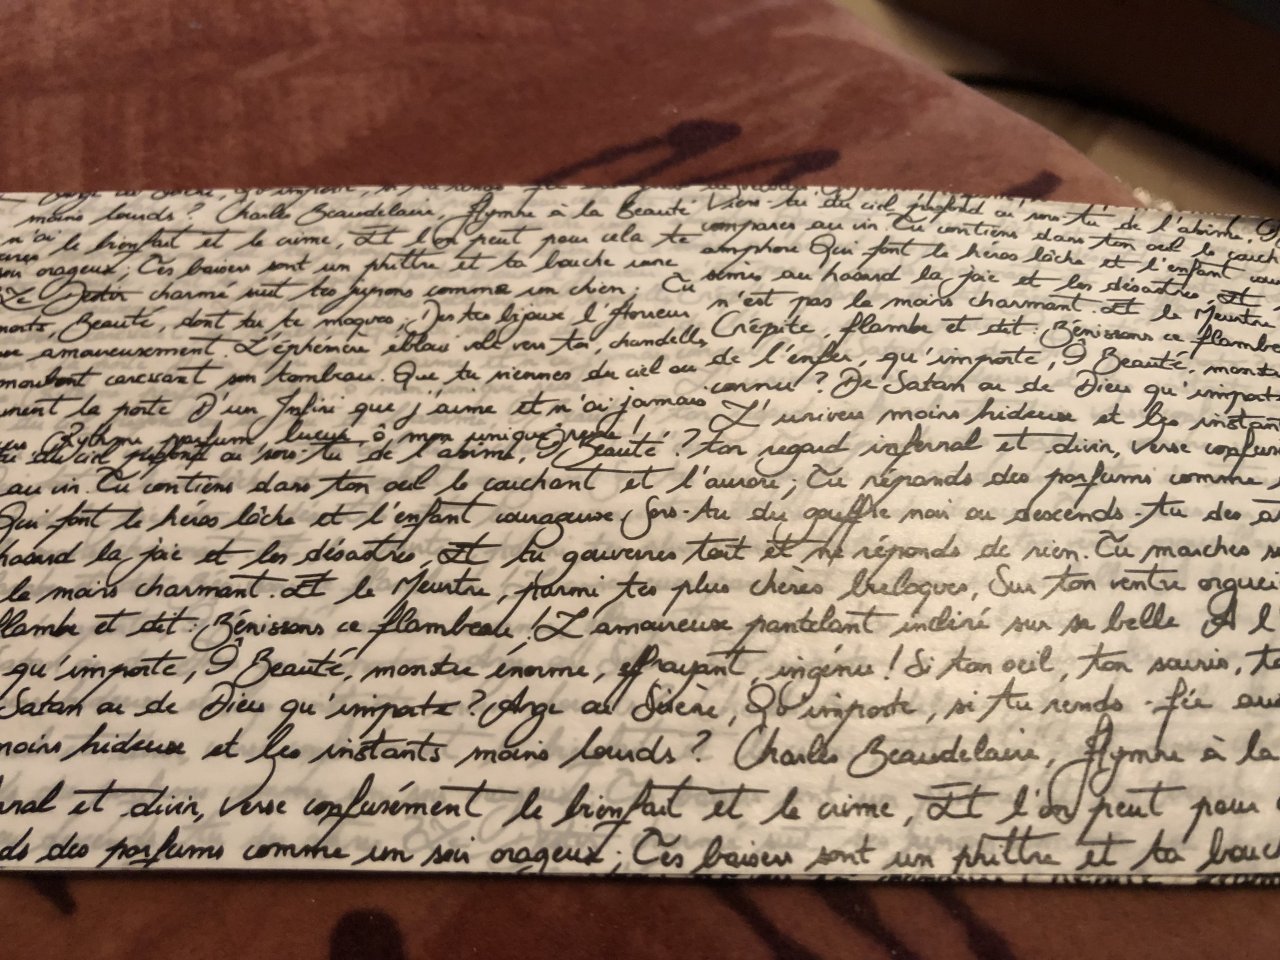 moins lourds ? Charles Beaudelaire, Hymne à la Beauté Viens-tu du ciel profond ou sors-tu de l'abîme, Ô
n'ai le bienfait et le crime, Et l'on peut pour cela te comparer au vin. Tu contiens dans ton oeil le couch
soir orageux; Tes baisers sont un philtre et ta bouche une amphore Qui font le héros lâche et l'enfant cour
Le Destin charmé suit tes jupons comme un chien; Tu sèmes au hasard la joie et les désastres, Et
morts, Beauté, dont tu te moques; De tes bijoux l'Horreur n'est pas le moins charmant. Et le Meurtre
amoureusement. L'éphémère ébloui vole vers toi, chandelle, Crépite, flambe et dit: Bénissons ce flambe
moribond caressant son tombeau. Que tu viennes du ciel ou de l'enfer, qu'importe, Ô Beauté, monst
urent la porte D'un Infini que j'aime et n'ai jamais connu ? De Satan ou de Dieu qu'import
Rythme parfum, lueur, ô mon unique reine ! L'univers moins hideux et les instant
du ciel profond ou sors-tu de l'abîme, Ô Beauté ? ton regard infernal et divin, verse confus
au vin. Tu contiens dans ton oeil le couchant et l'aurore; Tu répands des parfums comme
Qui font le héros lâche et l'enfant courageux Sors-tu du gouffre noir ou descends-tu des a
hasard la joie et les désastres, Et tu gouvernes tout et ne réponds de rien. Tu marches s
le moins charmant. Et le Meurtre, parmi tes plus chères breloques, Sur ton ventre orguei
flambe et dit: Bénissons ce flambeau ! L'amoureux pantelant incliné sur sa belle A l
qu'importe, Ô Beauté, monstre énorme, effrayant, ingénu ! Si ton oeil, ton souris, to
Satan ou de Dieu qu'importe ? Ange ou Sirène, Qu'importe, si tu rends - fée aux
moins hideux et les instants moins lourds ? Charles Beaudelaire, Hymne à la
rnal et divin, verse confusément le bienfait et le crime, Et l'on peut pour
ds des parfums comme un soir orageux; Tes baisers sont un philtre et ta bouch